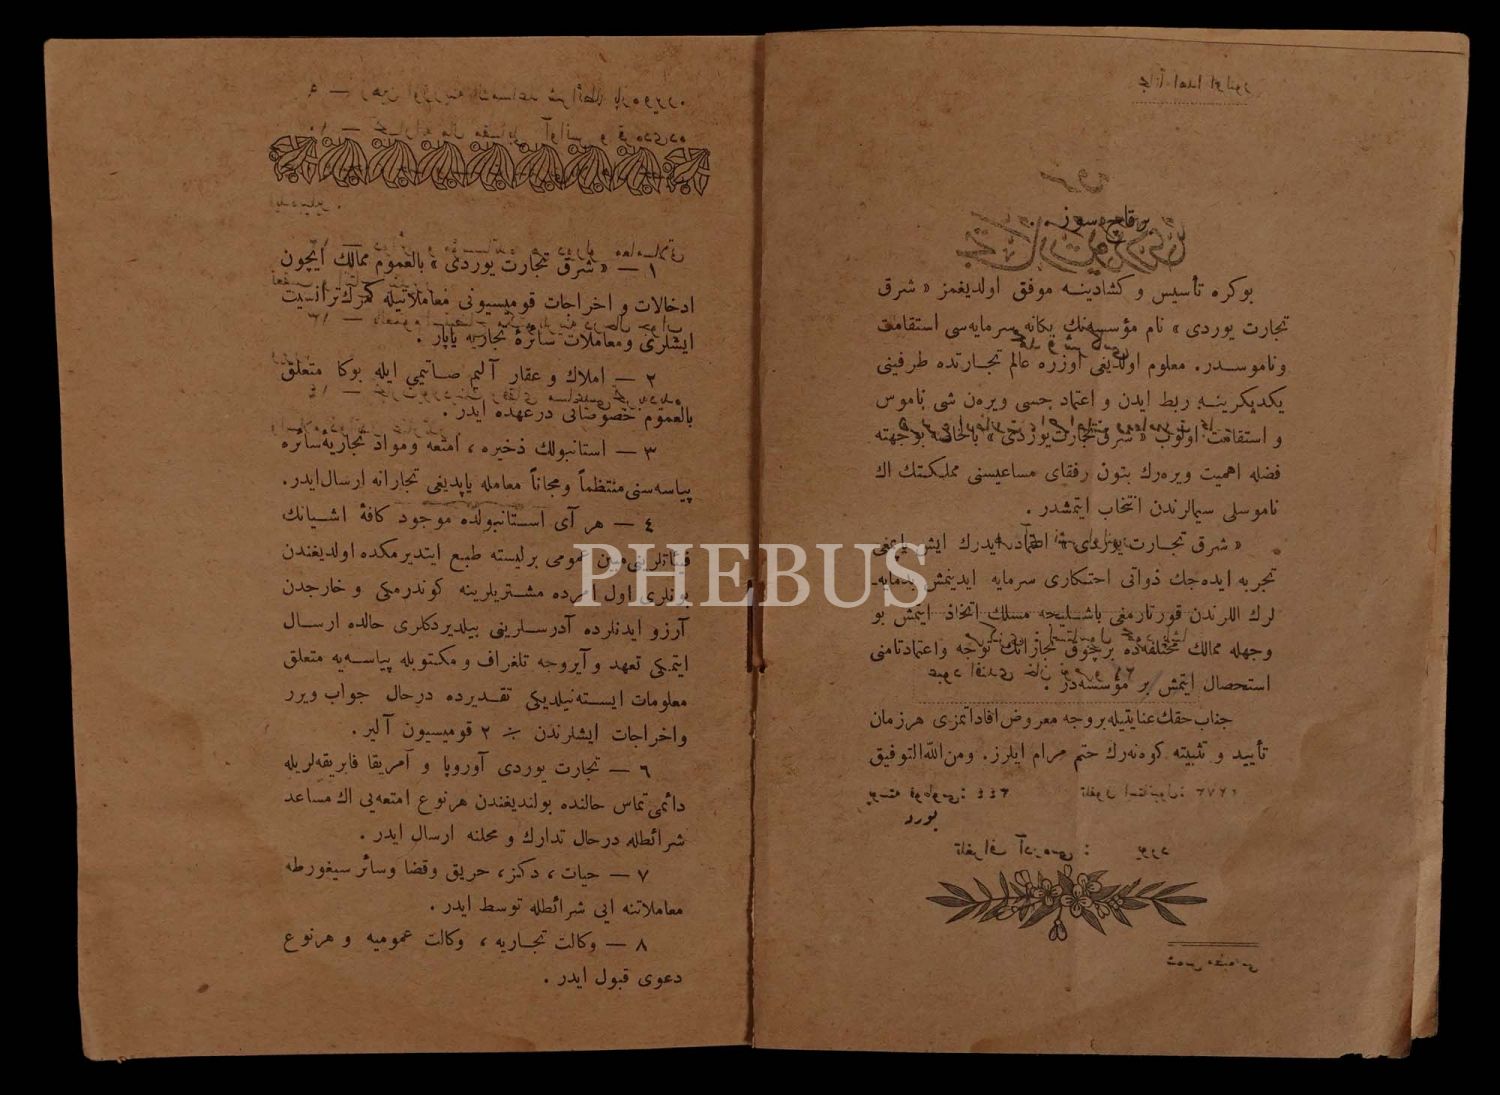 برقاچ سوز
بوكره تأسيس و كشادينه موفق اولديغمز « شرق
تجارت يوردى » نام مؤسسه‌نك يكانه سرمايه‌سى استقامت
وناموسدر. معلوم اولديغى اوزره عالم تجارتده طرفينى
يكديكرينه ربط ايدن و اعتماد حسى ويره‌ن شى ناموس
و استقامت اولوب « شرق تجارت يوردى » بالخاصه بوجهته
فضله اهميت ويره‌رك بتون رفقاى مساعيسنى مملكتك اك
ناموسلى سيمالرندن انتخاب ايتمشدر .
« شرق تجارت يوردى » اعتماد ايدرك ايش ياپمغى
تجربه ايده‌جك ذواتى احتكارى سرمايه ايدينمش
لرك اللرندن قورتارمغى باشليجه مسلك اتخاذ ايتمش بو
وجهله ممالك مختلفه‌ده برچوق تجارانك توجه واعتماد تامنى
استحصال ايتمش بر مؤسسه‌در .
جناب حقك عنايتيله بروجه معروض افاداتمزى هرزمان
تأييد و تثبيته كوشه‌رك ختم مرام ايلرز. ومن الله التوفيق
١ — « شرق تجارت يوردى » بالعموم ممالك ايچون
ادخالات و اخراجات قوميسيونى معاملاتيله كمرك ترانسيت
ايشلرى ومعاملات سائرهٔ تجاريه ياپار .
٢ — املاك و عقار آليم صاتيمى ايله بوكا متعلق
بالعموم خصوصاتى درعهده ايدر .
٣ — استانبولك ذخيره ، امتعه ومواد تجاريه‌سائره
پياسه‌سنى منتظماً ومجاناً معامله ياپديغى تجارانه ارسال ايدر.
٤ — هر آى استانبولده موجود كافهٔ اشيانك
فيئاتلرينى مبين عمومى برليسته طبع ايتديرمكده اولديغندن
بونلرى اول امرده مشتريلرينه كوندرمكى و خارجدن
آرزو ايدنلرده آدرسلرينى بيلديردكلرى حالده ارسال
ايتمكى تعهد و آيروجه تلغراف و مكتوبله پياسه‌يه متعلق
معلومات ايسته‌نيلديكى تقديرده درحال جواب ويرر
واخراجات ايشلرندن ٪ ٢ قوميسيون آلير .
٦ — تجارت يوردى آوروپا و آمريقا فابريقه‌لريله
دائمى تماس حالنده بولنديغندن هرنوع امتعه‌يى اك مساعد
شرائطله درحال تدارك و محلنه ارسال ايدر .
٧ — حيات ، دكز ، حريق وقضا وسائر سيغورطه
معاملاتنه ايى شرائطله توسط ايدر .
٨ — وكالت تجاريه ، وكالت عموميه و هرنوع
دعوى قبول ايدر .
PHEBUS